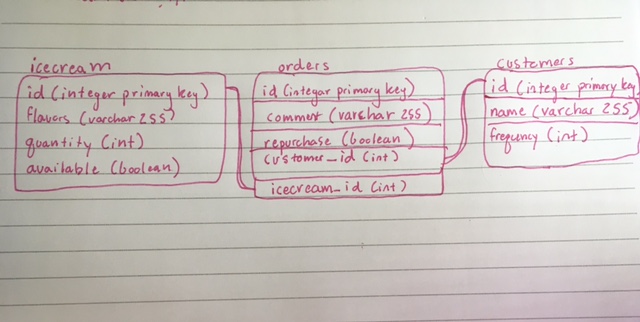 icecream
id (integer primary key)
flavors (varchar 255)
quantity (int)
available (boolean)
orders
id (integar primary key)
comment (varchar 255)
repurchase (boolean)
customer_id (int)
icecream_id (int)
customers
id (integer primary key
name (varchar 255)
frequency (int)